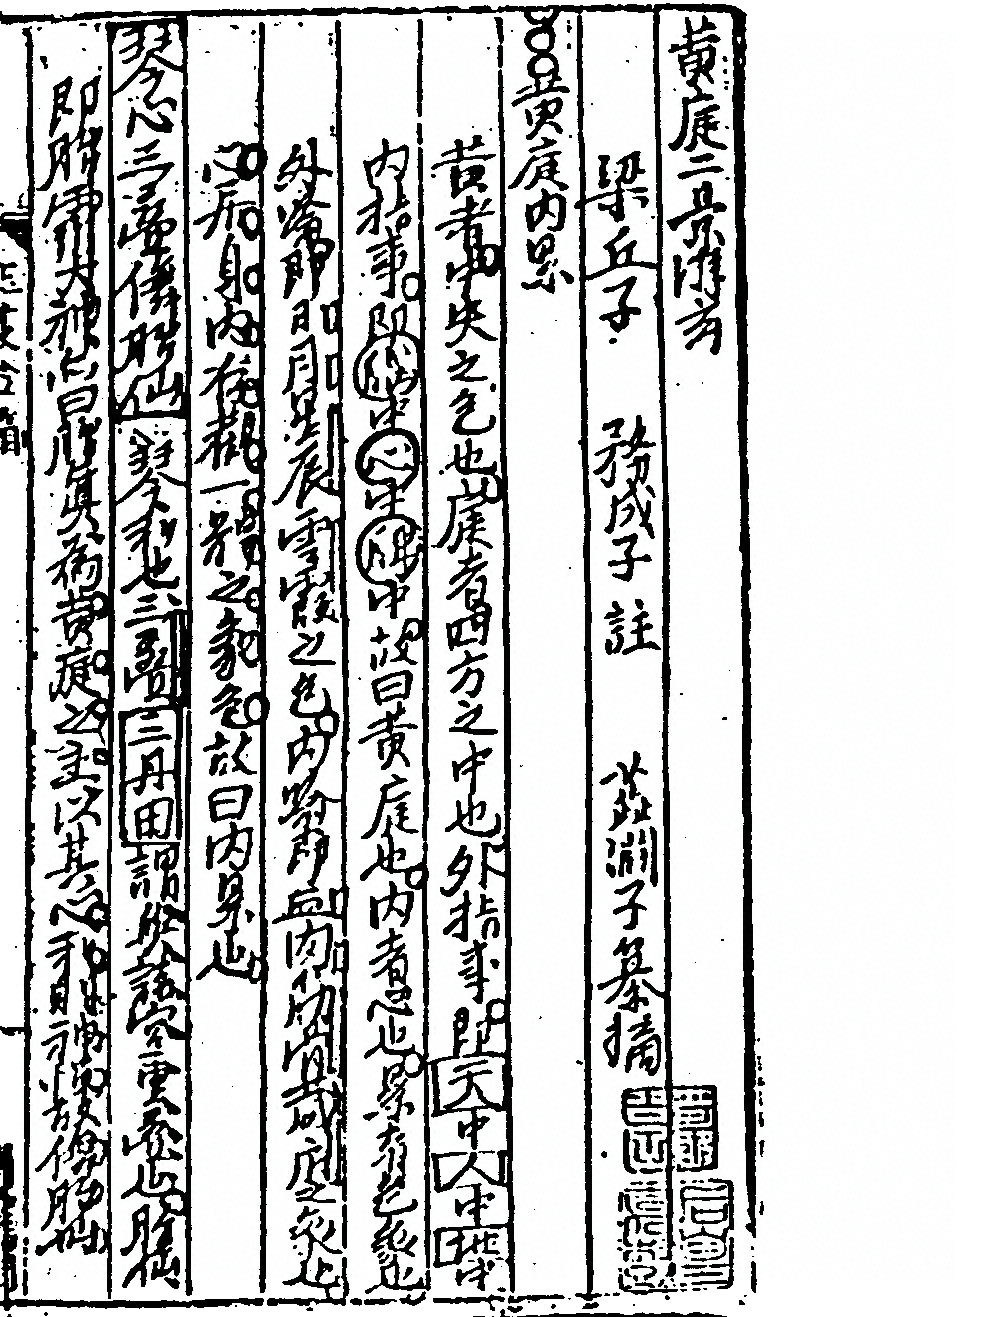 黄庭二景
梁丘子 務成子 註 子纂摘
黄庭内景
黄者中央之色也庭者四方之中也外指事即天中人中地中
内指事即腦中心中脾中故曰黄庭也内者心也景者色象也
外喻即日月星辰雲霞之色内喻即血肉筋骨藏府之象也
心居身内存觀一體之象色故曰内景也
琴心三疊儛胎仙 琴和也三疊三丹田謂與諸宮重疊也胎仙
即胎靈大神亦曰胎真居黄庭之中以其心和則神悦故儛胎仙也